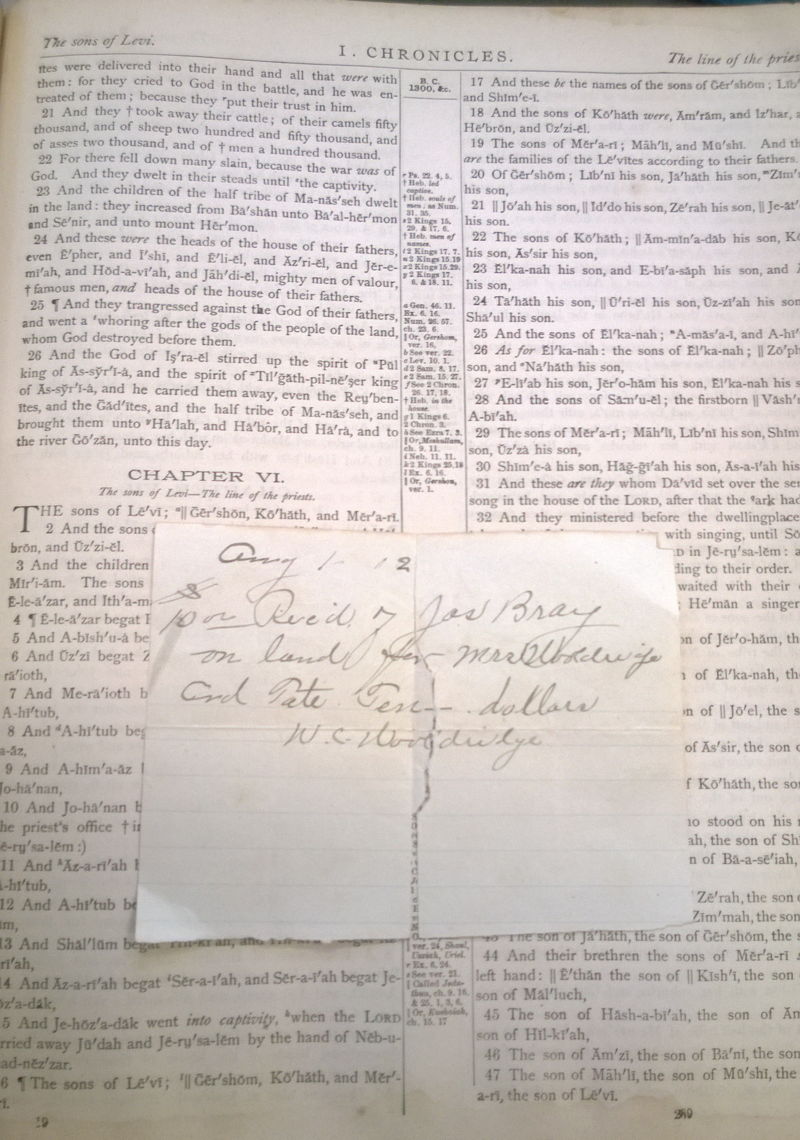 The sons of Levi.
I. CHRONICLES.
The line of the pries
ītes were delivered into their hand and all that were with
them: for they cried to God in the battle, and he was en-
treated of them; because they ʳput their trust in him.
21 And they † took away their cattle; of their camels fifty
thousand, and of sheep two hundred and fifty thousand, and
of asses two thousand, and of † men a hundred thousand.
22 For there fell down many slain, because the war was of
God. And they dwelt in their steads until ˢthe captivity.
23 And the children of the half tribe of Ma-năs'seh dwelt
in the land: they increased from Bā'shăn unto Bā'al-hẽr'mon
and Sē'nir, and unto mount Hẽr'mon.
24 And these were the heads of the house of their fathers,
even Ē'pher, and I'shī, and Ē'lĭ-ĕl, and Ăz'rĭ-ĕl, and Jĕr-e-
mī'ah, and Hŏd-a-vī'ah, and Jäh'dĭ-ĕl, mighty men of valour,
† famous men, and heads of the house of their fathers.
25 ¶ And they trangressed against the God of their fathers,
and went a ᵗwhoring after the gods of the people of the land,
whom God destroyed before them.
26 And the God of Iş'ra-ĕl stirred up the spirit of ᵘPŭl
king of Ăs-sy̆r'ĭ-à, and the spirit of ˣTĭl'ğăth-pĭl-nē'ṣer king
of Ăs-sy̆r'ĭ-à, and he carried them away, even the Reṳ'ben-
ītes, and the Găd'ītes, and the half tribe of Ma-năs'seh, and
brought them unto ʸHā'lah, and Hā'bôr, and Hā'rà, and to
the river Gō'zăn, unto this day.
CHAPTER VI.
The sons of Levi—The line of the priests.
THE sons of Lē'vī; ᵃ|| Gẽr'shŏn, Kō'hăth, and Mĕr'a-rī.
2 And the sons
brŏn, and Ŭz'zi-ĕl.
3 And the children
Mĭr'ĭ-ăm. The sons
Ē-le-ā'zar, and Ith'a-m
4 ¶ Ē-le-ā'zar begat
5 And A-bĭsh'u-à be
6 And Ŭz'zī begat
rā'ioth,
7 And Me-rā'ioth b
A-hī'tub,
8 And ᵈA-hī'tub beg
a-ăz,
9 And A-hĭm'a-ăz
Jo-hā'nan,
10 And Jo-hā'nan
he priest's office † i
ê-rṳ'sa-lĕm :)
11 And ᵏĂz-a-rī'ah
-hī'tub,
12 And A-hī'tub be
ŭm,
13 And Shăl'lŭm begat
rī'ah,
14 And Ăz-a-rī'ah begat ᶦSĕr-a-ī'ah, and Sĕr-a-ī'ah begat Je-
ŏz'a-dăk,
5 And Je-hŏz'a-dăk went into captivity, ᵏwhen the LORD
rried away Jū'dah and Jê-rṳ'sa-lĕm by the hand of Nĕb-u-
ad-nĕz'zar.
6 ¶ The sons of Lē'vī; ᶦ|| Gẽr'shŏm, Kō'hăth, and Mĕr'-
ī.
B. C.
1300, &c.
r Ps. 22. 4, 5.
† Heb. led
captive.
† Heb. souls of
men; as Num.
31. 35.
s 2 Kings 15.
29, & 17. 6.
† Heb. men of
names.
t 2 Kings 17. 7.
u 2 Kings 15. 19
x 2 Kings 15. 29.
y 2 Kings 17.
6, & 18. 11.
a Gen. 46. 11.
Ex. 6. 16.
Num. 26. 57.
ch. 23. 6.
|| Or, Gershom,
ver. 16.
b See ver. 22.
c Lev. 10. 1.
d 2 Sam. 8. 17.
e 2 Sam. 15. 27.
f See 2 Chron.
26. 17, 18.
† Heb. in the
house.
g 1 Kings 6.
2 Chron. 3.
h See Ezra 7. 3.
|| Or, Meshullam,
ch. 9. 11.
i Neh. 11. 11.
k 2 Kings 25. 18
l Ex. 6. 16.
|| Or, Gershon,
ver. 1.
17 And these be the names of the sons of Gẽr'shŏm; Lĭb'
and Shĭm'e-ī.
18 And the sons of Kō'hăth were, Ăm'răm, and Iz'har, a
Hē'brŏn, and Ŭz'zi-ĕl.
19 The sons of Mĕr'a-rī; Mäh'lī, and Mū'shī. And th
are the families of the Lē'vītes according to their fathers.
20 Of Gẽr'shŏm; Lĭb'nī his son, Jā'hăth his son, ᵐZĭm'
his son,
21 || Jō'ah his son, || Id'do his son, Zē'rah his son, || Je-ăt'
his son.
22 The sons of Kō'hăth; || Ăm-mĭn'a-dăb his son, Kō
his son, Ăs'sir his son,
23 Ĕl'ka-nah his son, and E-bī'a-săph his son, and
his son,
24 Tā'hăth his son, || Ū'rĭ-ĕl his son, Ŭz-zī'ah his son
Shā'ul his son.
25 And the sons of Ĕl'ka-nah; ⁿA-măs'a-ī, and A-hī'
26 As for Ĕl'ka-nah: the sons of Ĕl'ka-nah; || Zō'ph
son, and ᵒNā'hăth his son,
27 ᵖE-lī'ab his son, Jĕr'o-hăm his son, Ĕl'ka-nah his s
28 And the sons of Săm'u-ĕl; the firstborn || Văsh'
A-bī'ah.
29 The sons of Mĕr'a-rī; Mäh'lī, Lĭb'nī his son, Shĭm
son, Ŭz'zà his son,
30 Shĭm'e-à his son, Hăğ-ğī'ah his son, Ăs-a-ī'ah his
31 And these are they whom Dā'vid set over the se
song in the house of the LORD, after that the ᵠark had
32 And they ministered before the dwellingplace
with singing, until Sŏ
D in Jê-rṳ'sa-lĕm: a
ding to their order.
waited with their
Hē'măn a singer
on of Jĕr'o-hăm, th
of Ĕl'ka-nah, the
on of || Jō'el, the s
of Ăs'sir, the son
f Kō'hăth, the so
ho stood on his
ah, the son of Sh
n of Bā-a-sē'iah,
Zē'rah, the son
Zĭm'mah, the son
43 The son of Jā'hăth, the son of Gẽr'shŏm, the s
44 And their brethren the sons of Mĕr'a-rī
left hand: || Ē'thăn the son of || Kĭsh'ī, the son
son of Măl'luch,
45 The son of Hăsh-a-bī'ah, the son of Ăm
son of Hĭl-kī'ah,
46 The son of Ăm'zī, the son of Bā'nī, the son
47 The son of Mäh'lī, the son of Mū'shī, the son
a-rī, the son of Lē'vī.
Aug 1 - 12
$
10 00 Rec'd of Jas Bray
on land for Mrs Wooldrige
and Tate Ten - - dollars
W. C. Wooldridge
ver. 24, Shaul,
Uzziah, Uriel.
r Ex. 6. 24.
s See ver. 21.
|| Called Jedu-
thun, ch. 9. 16.
& 25. 1, 3, 6.
|| Or, Kushaiah,
ch. 15. 17